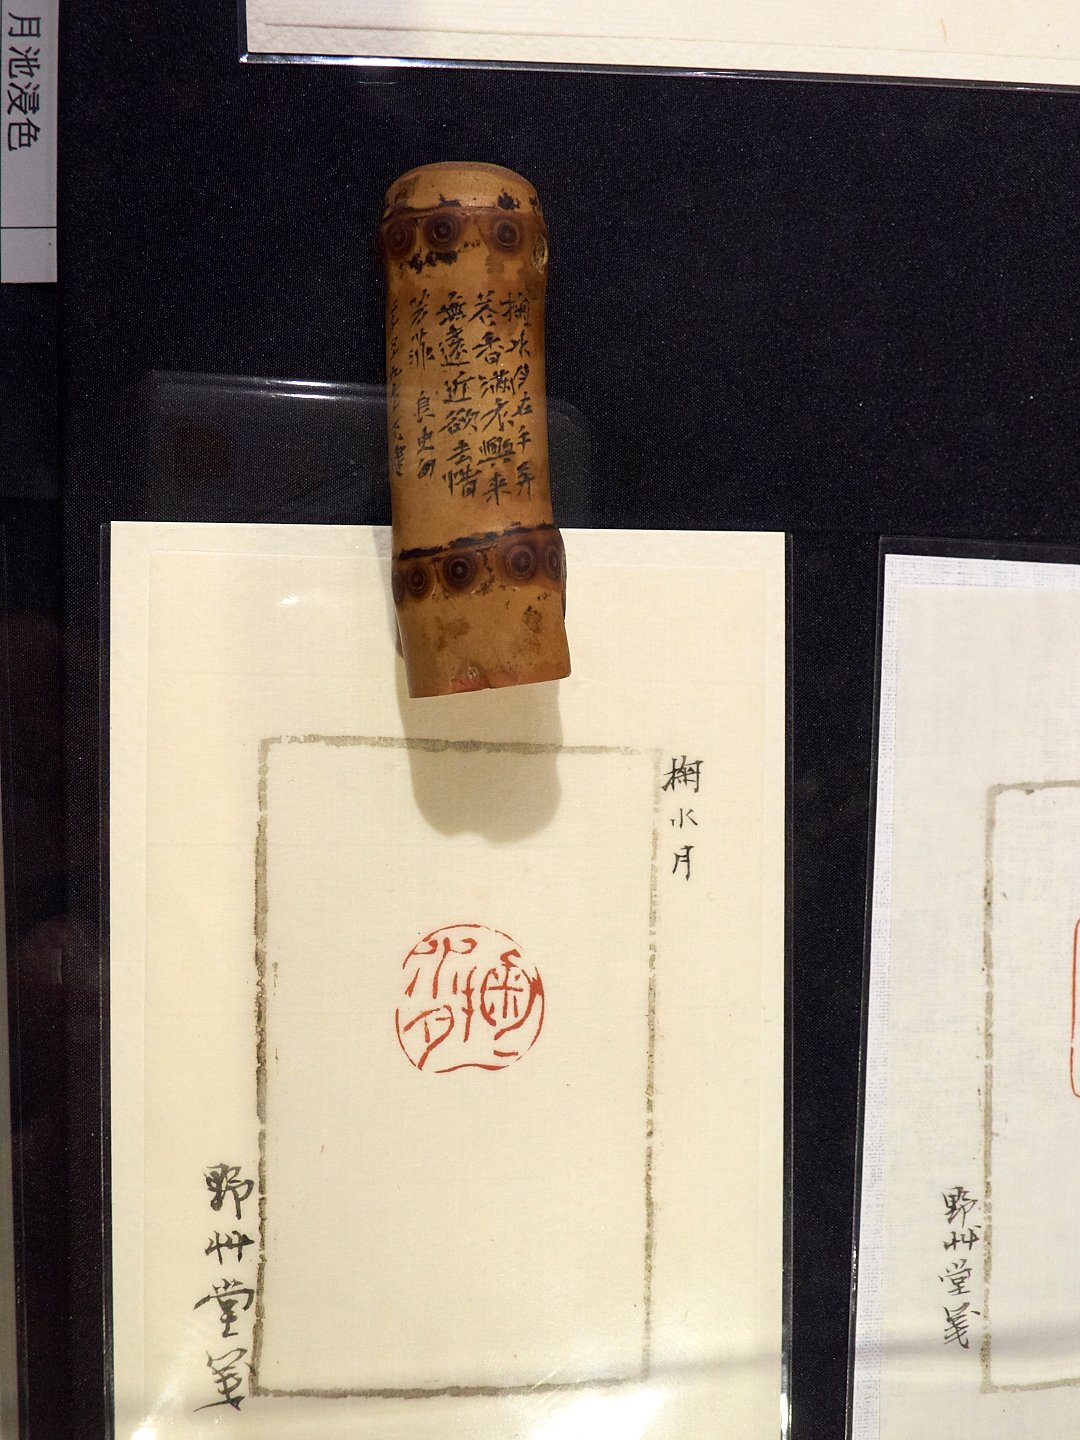 月池浸色
掬水月在手弄
花香满衣興来
無遠近欲去惜
芳菲 良史句
掬水月
掬水月
野艸堂箋
野艸堂箋